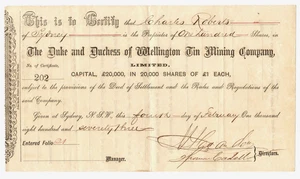 This is to Certify that Charles Roberts
of Sydney is the Proprietor of One hundred Shares, in
The Duke and Duchess of Wellington Tin Mining Company,
LIMITED.
No. of Certificate.
202
CAPITAL, £20,000, IN 20,000 SHARES OF £1 EACH,
subject to the provisions of the Deed of Settlement and the Rules and Regulations of the
said Company.
Given at Sydney, N.S.W., this fourth day of February One thousand
eight hundred and seventy three
Entered Folio
Manager.
Directors.